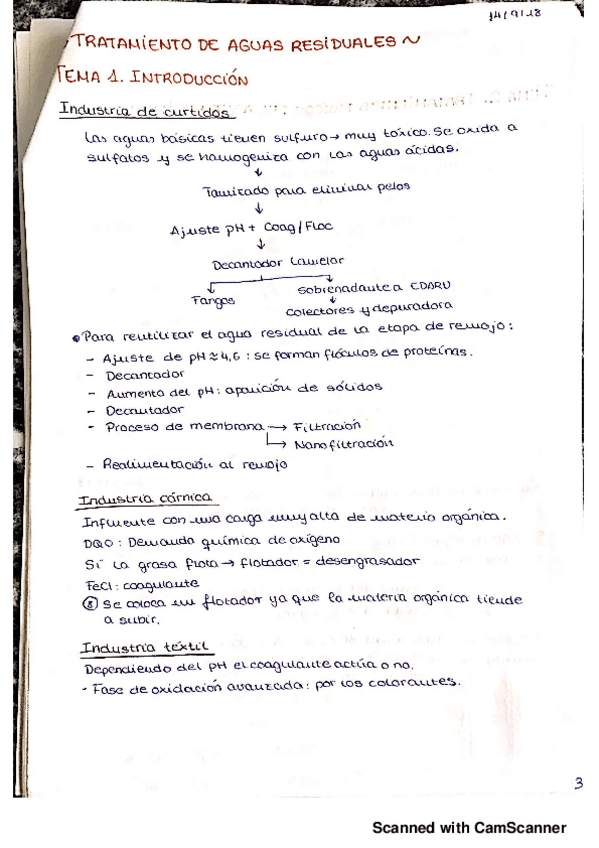 14/9/18
TRATAMIENTO DE AGUAS RESIDUALES ~
TEMA 1. INTRODUCCIÓN
Industria de curtidos
Las aguas básicas tienen sulfuro → muy tóxico. Se oxida a
sulfatos y se homogeniza con las aguas ácidas.
↓
Tamizado para eliminar pelos
↓
Ajuste pH + Coag/Floc
↓
Decantador Lamelar
Fangos
Sobrenadante a EDARU
↓
colectores y depuradora
• Para reutilizar el agua residual de la etapa de remojo:
- Ajuste de pH ≈ 4,6 : se forman flóculos de proteínas.
- Decantador
- Aumento del pH : aparición de sólidos
- Decantador
- Proceso de membrana → Filtración
→ Nanofiltración
- Realimentación al remojo
Industria cárnica
Influente con una carga muy alta de materia orgánica.
DQO : Demanda química de oxígeno
Si la grasa flota → flotador = desengrasador
FeCl : coagulante
⑧ Se coloca un flotador ya que la materia orgánica tiende
a subir.
Industria textil
Dependiendo del pH el coagulante actúa o no.
- Fase de oxidación avanzada : por los colorantes.
3
Scanned with CamScanner